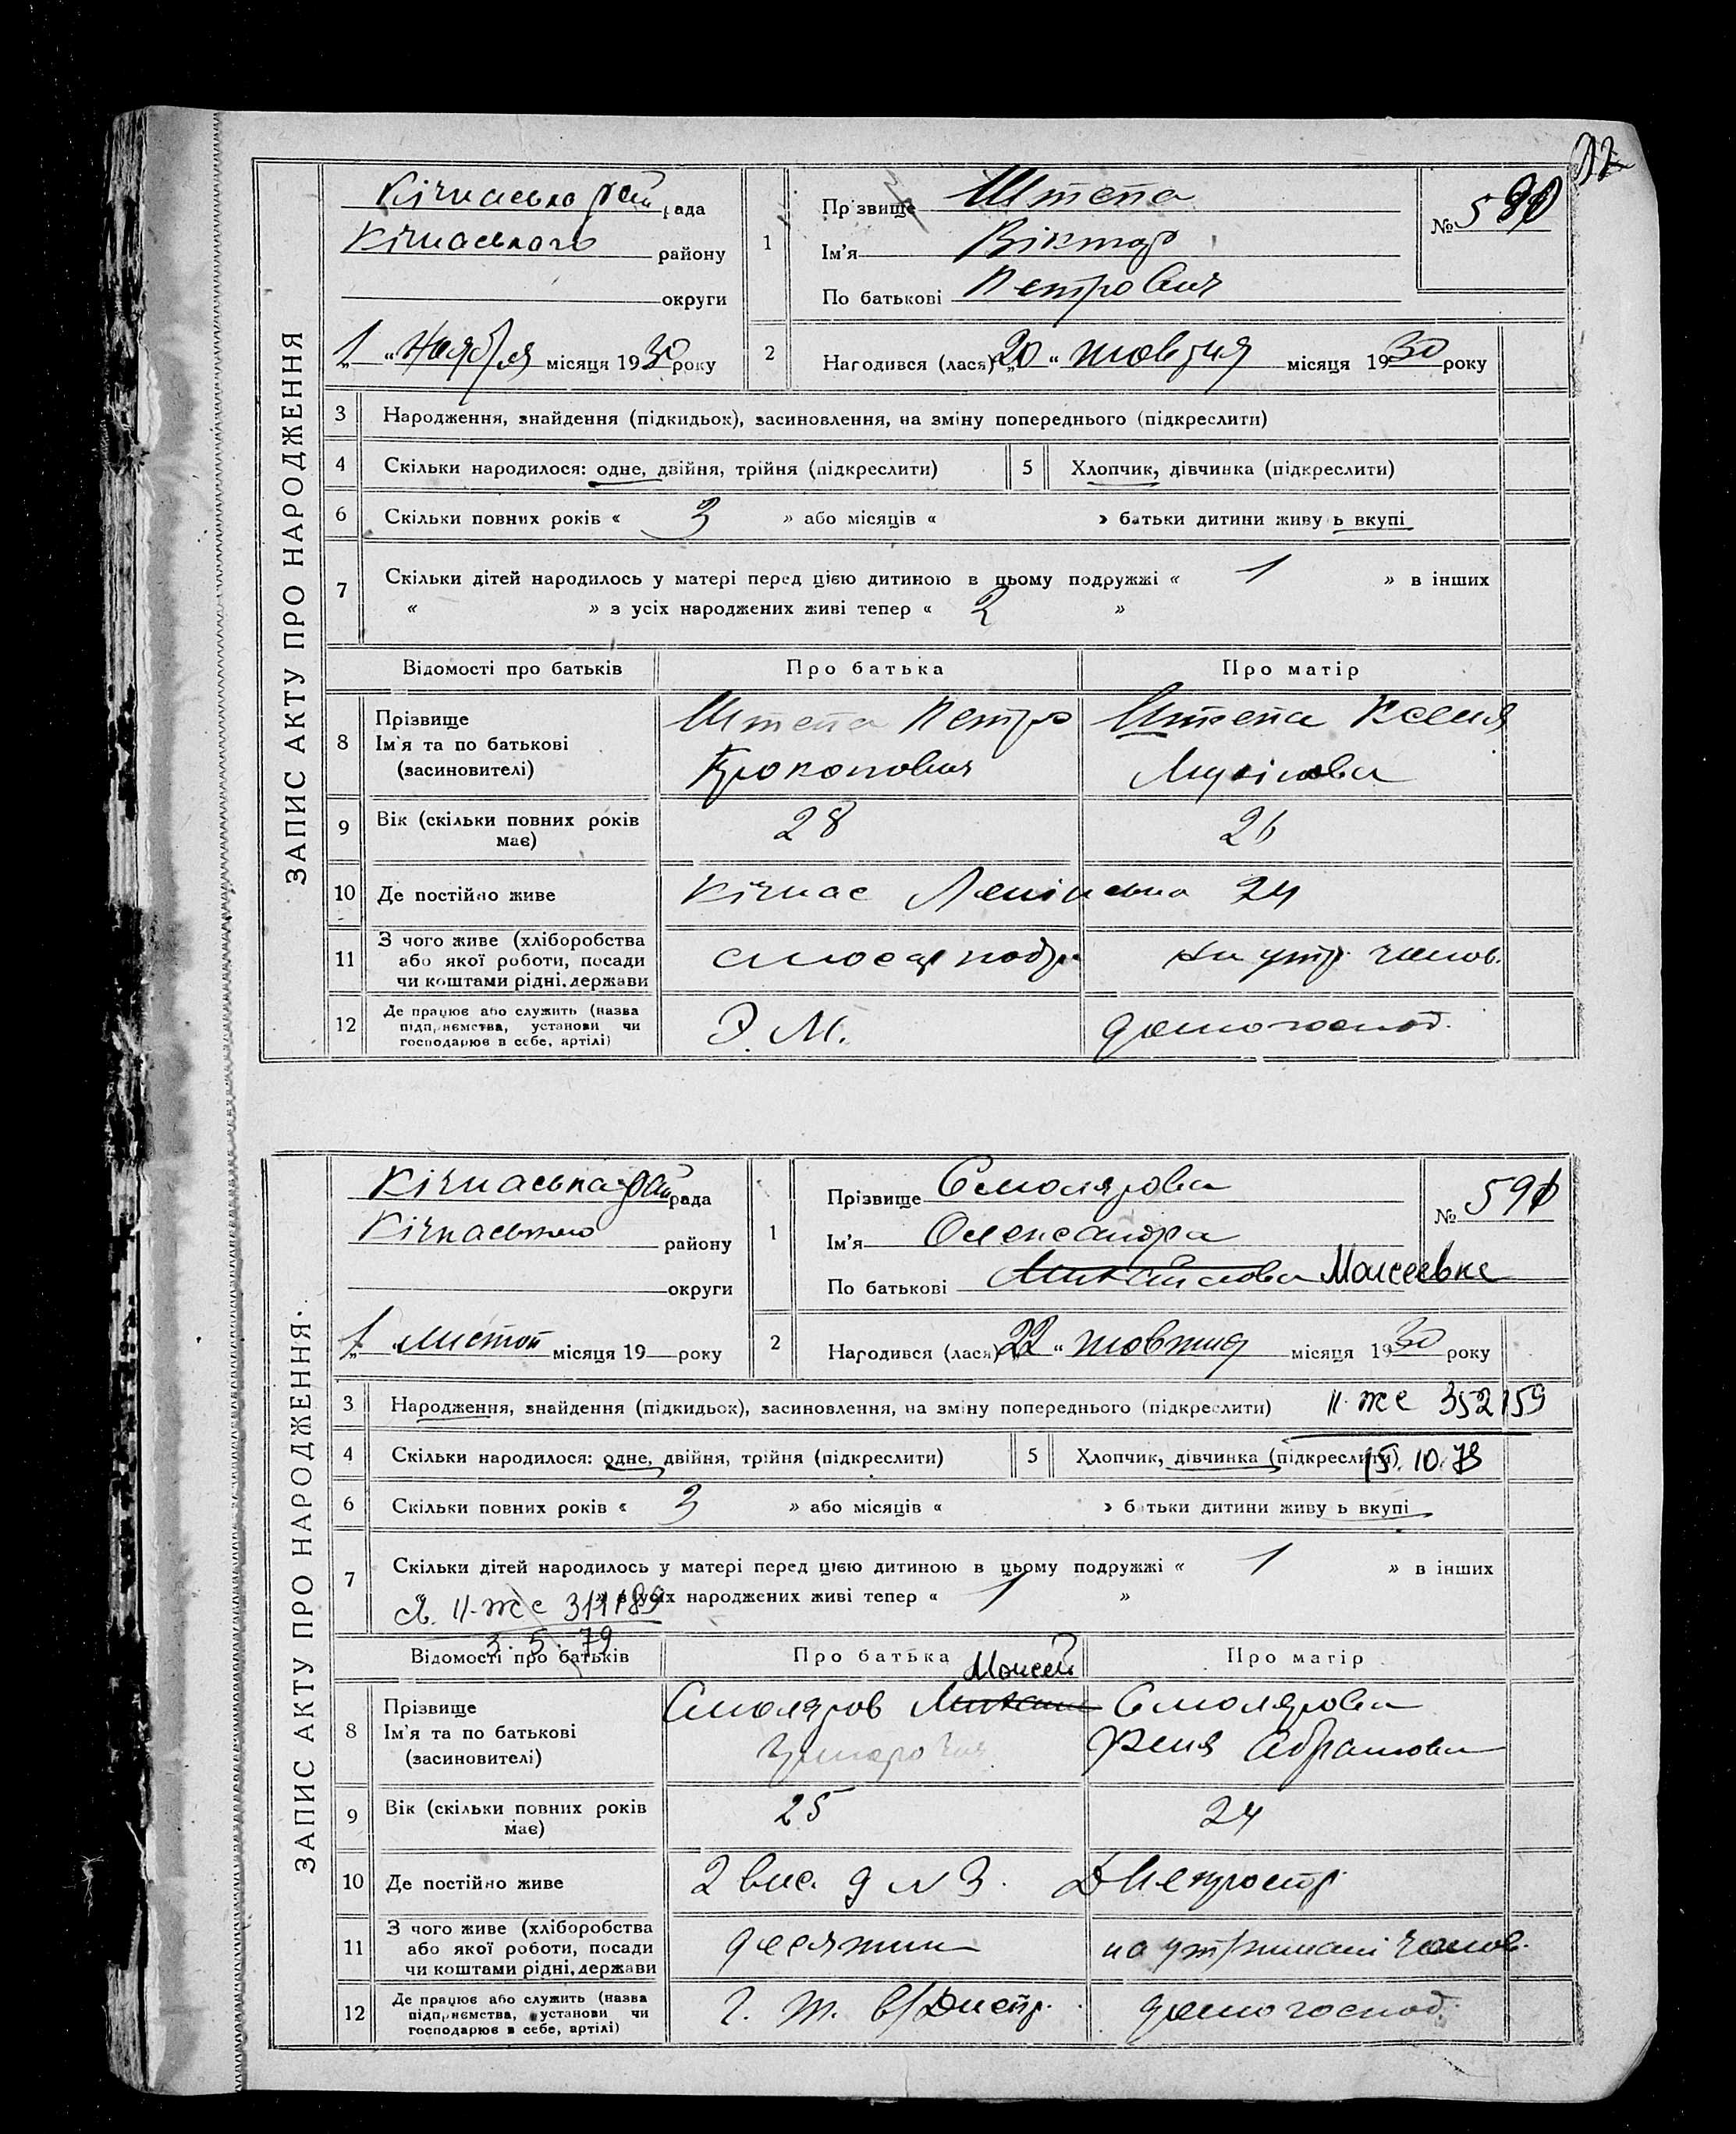 ЗАПИС АКТУ ПРО НАРОДЖЕННЯ
Кічкаська рай рада
Кічкаського району
округи
„1“ Ноября місяця 1930 року
1
Прізвище Штепа
Ім'я Віктор
По батькові Петрович
№ 590
2
Народився (лася) „20“ жовтня місяця 1930 року
3 Народження, знайдення (підкидьок), засиновлення, на зміну попереднього (підкреслити)
4 Скільки народилося: одне, двійня, трійня (підкреслити)
5 Хлопчик, дівчинка (підкреслити)
6 Скільки повних років « 3 » або місяців « » батьки дитини живуть вкупі
7 Скільки дітей народилось у матері перед цією дитиною в цьому подружжі « 1 » в інших
« » з усіх народжених живі тепер « 2 »
Відомості про батьків Про батька Про матір
8 Прізвище
Ім'я та по батькові
(засиновителі)
Штепа Петро
Прокопович
Штепа Ксенія
9 Вік (скільки повних років
має)
28 26
10 Де постійно живе Кічкас Ленінська 24
11 З чого живе (хліборобства
або якої роботи, посади
чи коштами рідні, держави
на утр. чолов.
12 Де працює або служить (назва
підприємства, установи чи
господарює в себе, артілі)
Э. М. домогоспод.
ЗАПИС АКТУ ПРО НАРОДЖЕННЯ.
Кічкаська рай рада
Кічкаського району
округи
„1 листоп місяця 19 року
1
Прізвище Смолярова
Ім'я Олександра
По батькові Михайлова Моисеевна
№ 591
2
Народився (лася) „22“ жовтня місяця 1930 року
3 Народження, знайдення (підкидьок), засиновлення, на зміну попереднього (підкреслити)
II-ЖС 352159
4 Скільки народилося: одне, двійня, трійня (підкреслити)
5 Хлопчик, дівчинка (підкреслити)
15.10.73
6 Скільки повних років « 3 » або місяців « » батьки дитини живуть вкупі
7 Скільки дітей народилось у матері перед цією дитиною в цьому подружжі « 1 » в інших
« » з усіх народжених живі тепер « 1 »
II-ЖС
3.5.79
Відомості про батьків Про батька Про матір
Моисей
8 Прізвище
Ім'я та по батькові
(засиновителі)
Смоляров Михаил
Смолярова
Феня Абрамовна
9 Вік (скільки повних років
має)
25 24
10 Де постійно живе 2 вис. д № 3. Днепрострой
11 З чого живе (хліборобства
або якої роботи, посади
чи коштами рідні, держави
десятник
на утриманні чолов.
12 Де працює або служить (назва
підприємства, установи чи
господарює в себе, артілі)
Г. Т. в/Днепр.
домогоспод.